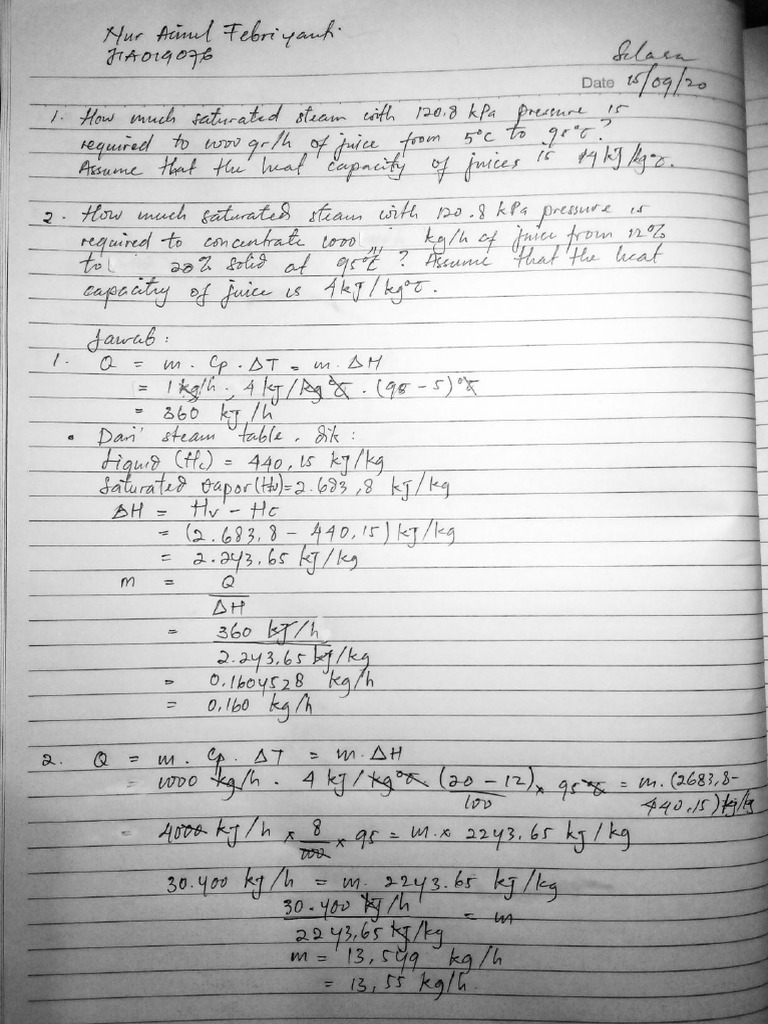 Nur Ainul Febriyanti
J1A019076
Selasa
Date 15/09/20
1. How much saturated steam with 120.8 kPa pressure is
required to 1000 gr/h of juice from 5°C to 95°C?
Assume that the heat capacity of juices is 4 kJ/kg°C.
2. How much saturated steam with 120.8 kPa pressure is
required to concentrate 1000 kg/h of juice from 12%
to 20% solid at 95°C? Assume that the heat
capacity of juice is 4 kJ/kg°C.
Jawab:
1. Q = m. Cp. ΔT = m. ΔH
= 1 kg/h. 4 kJ/kg°C. (95 - 5)°C
= 360 kJ/h
• Dari steam table, dik:
Liquid (Hc) = 440,15 kJ/kg
Saturated vapor (Hv) = 2.683,8 kJ/kg
ΔH = Hv - Hc
= (2.683,8 - 440,15) kJ/kg
= 2.243,65 kJ/kg
m = Q
ΔH
= 360 kJ/h
2.243,65 kJ/kg
= 0,1604528 kg/h
= 0,160 kg/h
2. Q = m. Cp. ΔT = m. ΔH
= 1000 kg/h. 4 kJ/kg°C (20 - 12) x 95°C = m. (2683,8-
100
440,15) kJ/kg
= 4000 kJ/h x 8 x 95 = m. x 2243,65 kJ/kg
100
30.400 kJ/h = m. 2243.65 kJ/kg
30.400 kJ/h = m
2243,65 kJ/kg
m = 13,549 kg/h
= 13,55 kg/h.